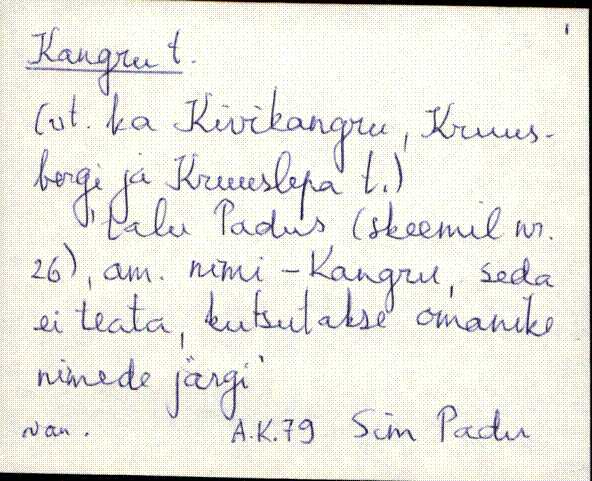 Kangru t.
(vt. ka Kivikangru, Kruus-
bergi ja Kruuslepa t.)
'talu Padus (skeemil nr.
26), am. nimi - Kangru, seda
ei teata, kutsutakse omanike
nimede järgi'
van. A.K.79 Sim Padu